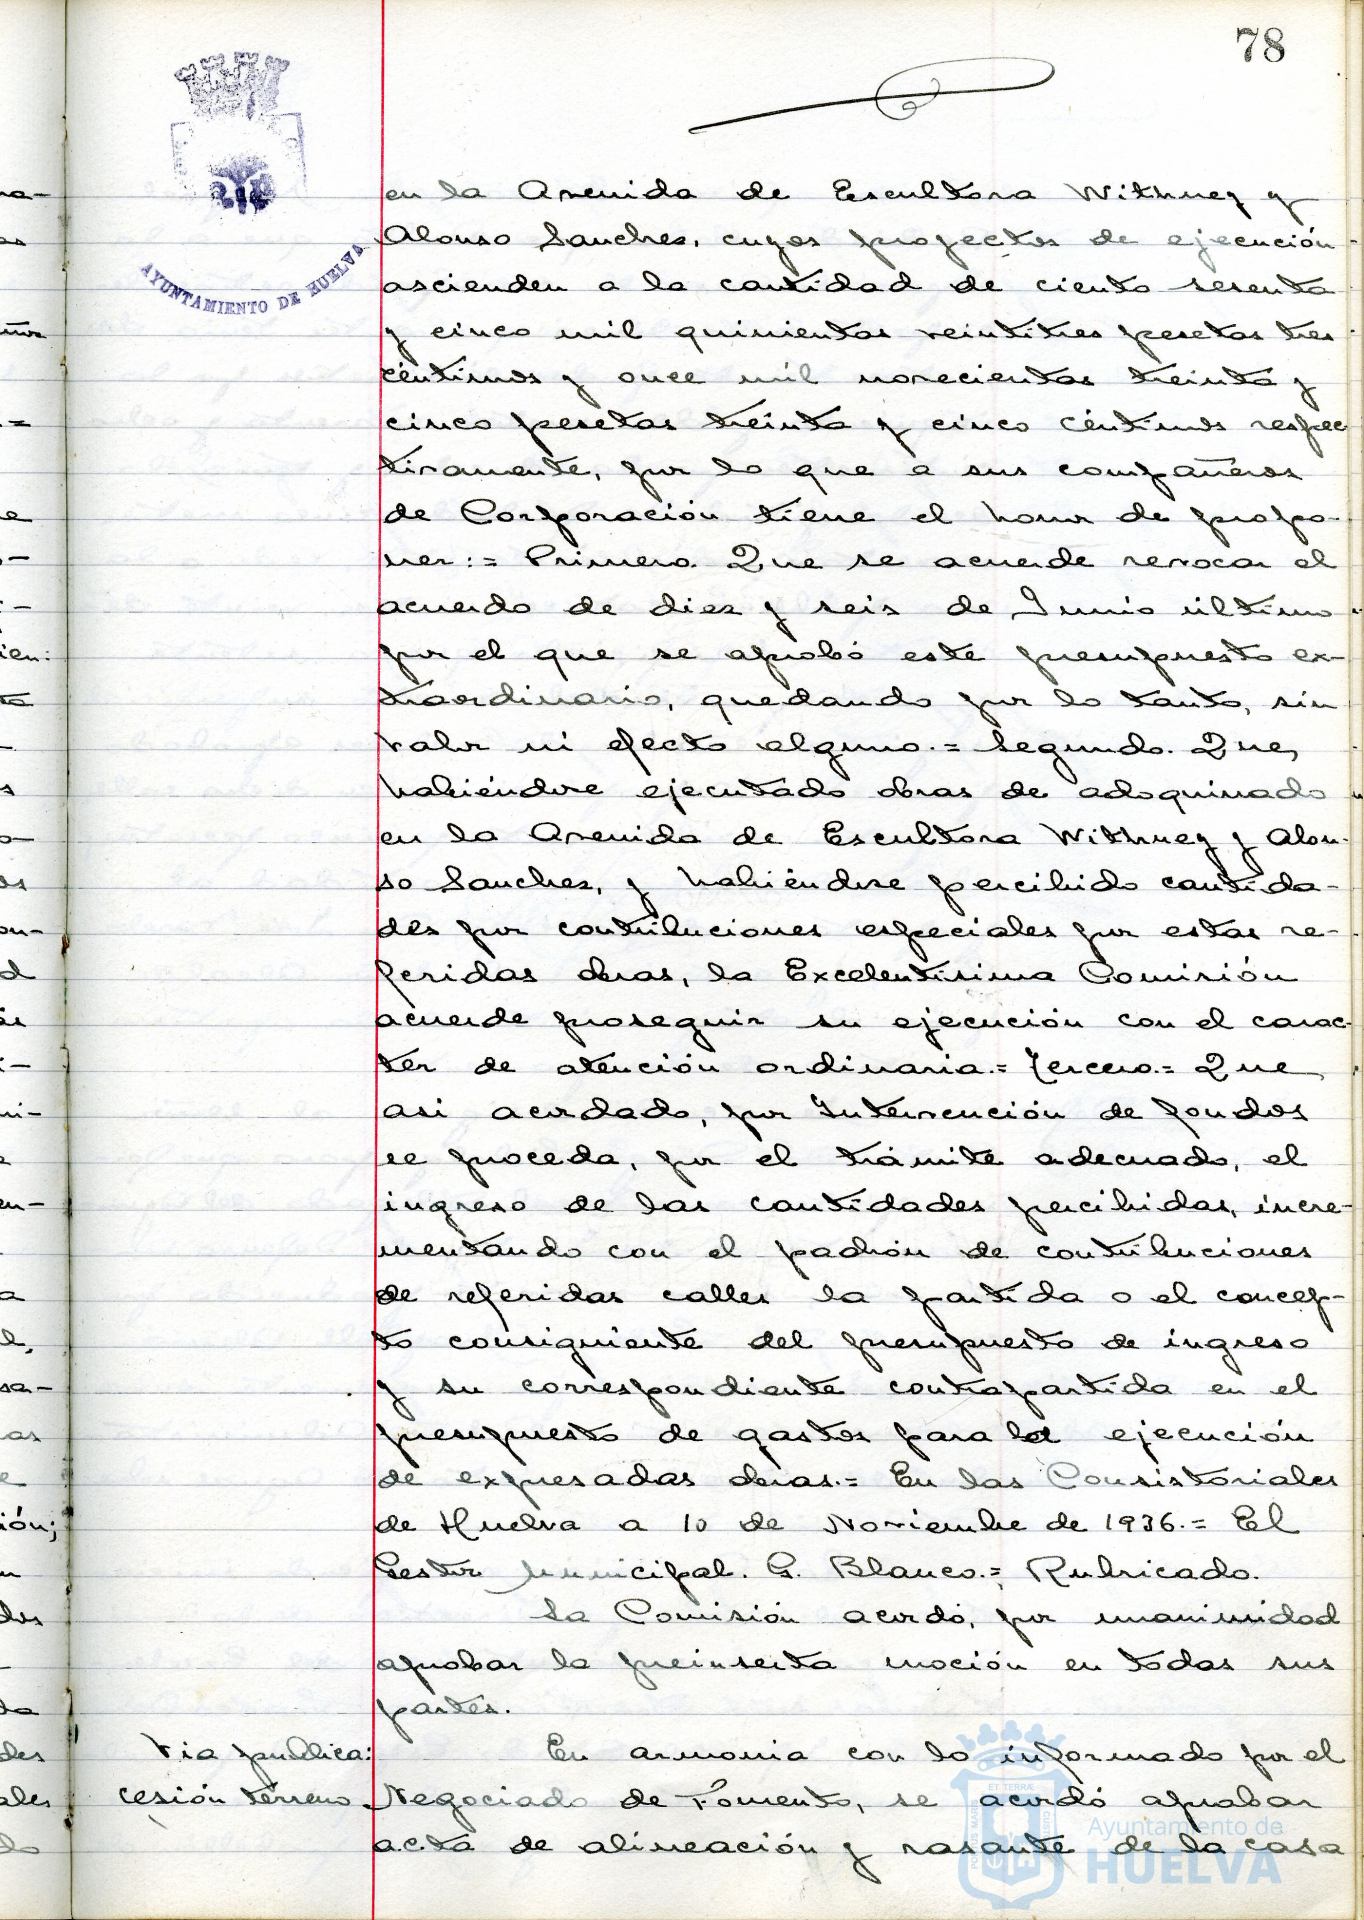 78
AYUNTAMIENTO DE HUELVA
en la Avenida de Escultora Withney y
Alonso Sanchez, cuyos proyectos de ejecución
ascienden a la cantidad de ciento sesenta
y cinco mil quinientas veintitres pesetas tres
céntimos y once mil novecientas treinta y
cinco pesetas treinta y cinco céntimos respec
tivamente, por lo que a sus compañeros
de Corporación tiene el honor de propo-
ner:= Primero. Que se acuerde revocar el
acuerdo de diez y seis de Junio último
por el que se aprobó este presupuesto ex-
traordinario, quedando por lo tanto, sin
valor ni efecto alguno.= Segundo. Que,
habiéndose ejecutado obras de adoquinado
en la Avenida de Escultora Withney y Alon-
so Sanchez, y habiéndose percibido cantida-
des por contribuciones especiales por estas re-
feridas obras, la Excelentísima Comisión
acuerde proseguir su ejecución con el carac-
ter de atención ordinaria.= Tercero.= Que
asi acordado, por Intervención de fondos
se proceda, por el trámite adecuado, el
ingreso de las cantidades percibidas, incre-
mentando con el padrón de contribuciones
de referidas calles la partida o el concep-
to consiguiente del presupuesto de ingreso
y su correspondiente contrapartida en el
presupuesto de gastos para la ejecución
de expresadas obras.= En las Consistoriales
de Huelva a 10 de Noviembre de 1936.= El
Gestor Municipal. G. Blanco.= Rubricado.
La Comisión acordó, por unanimidad
aprobar la preinserta moción en todas sus
partes.
Via publica: En armonia con lo informado por el
cesión terreno. Negociado de Fomento, se acordó aprobar
acta de alineación y rasante de la casa
Ayuntamiento de
HUELVA